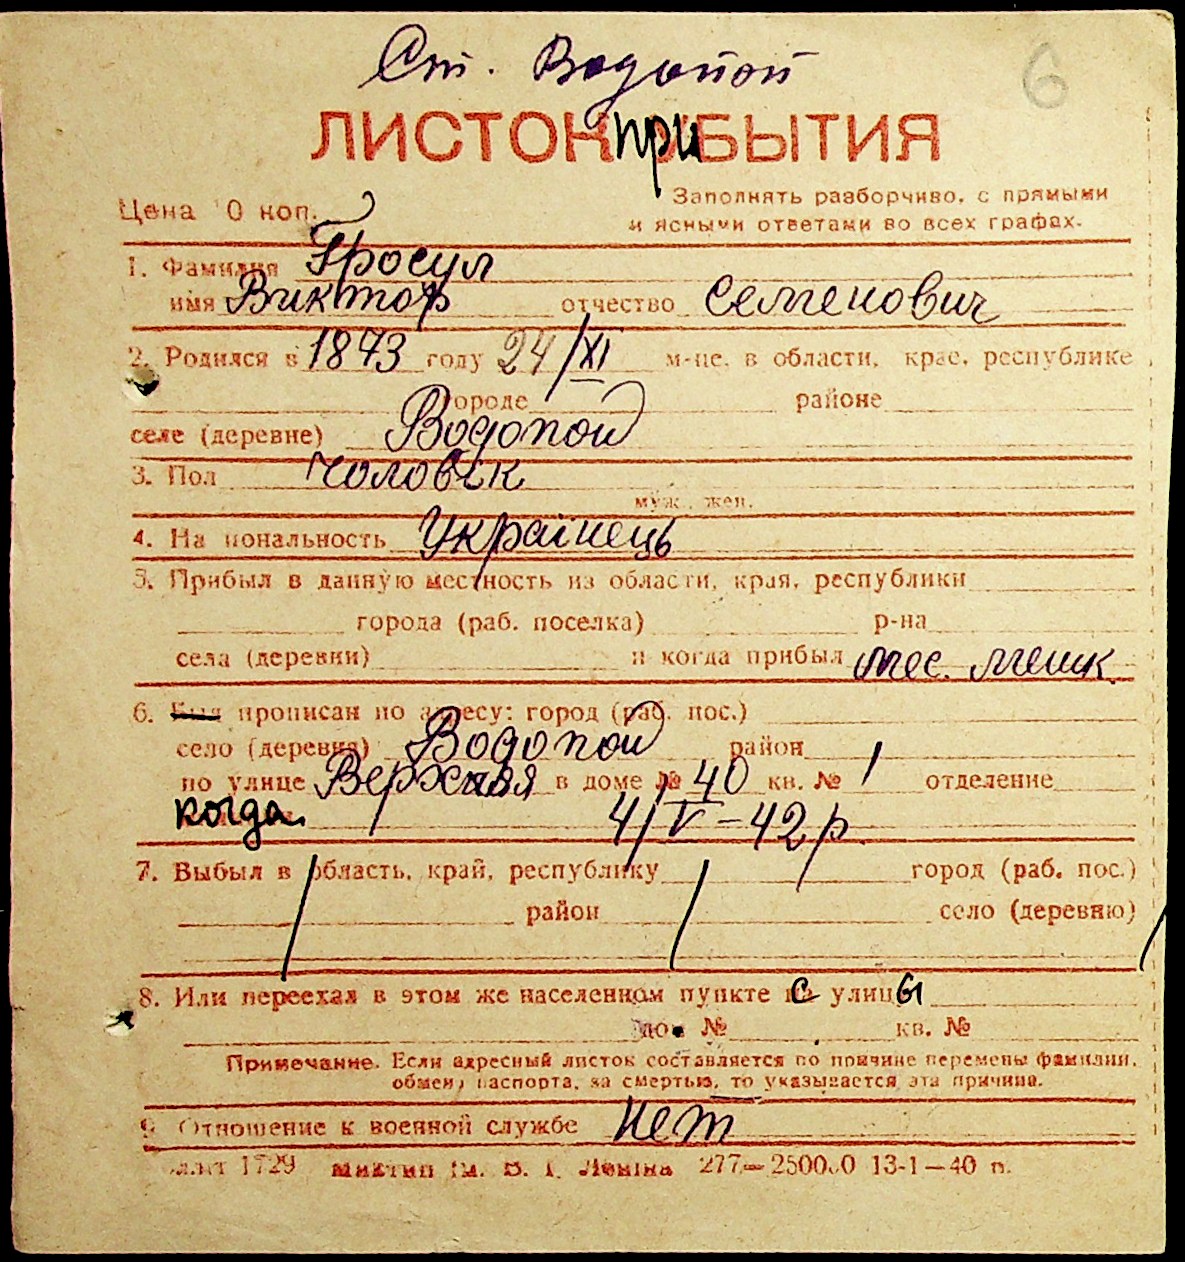 Ст. Водопой
6
ЛИСТОК ПРИБЫТИЯ
Цена 0 коп.
Заполнять разборчиво, с прямыми
и ясными ответами во всех графах.
1. Фамилия Гросул
имя Виктор отчество Семенович
2. Родился в 1873 году 24/XI м-це, в области, крае, республике
городе районе
селе (деревне) Водопой
3. Пол чоловік
муж., жен.
4. Национальность Українець
5. Прибыл в данную местность из области, края, республики
города (раб. поселка) р-на
села (деревни) и когда прибыл мес. мешк.
6. Был прописан по адресу: город (раб. пос.)
село (деревня) Водопой район
по улице Верхняя в доме № 40 кв. № 1 отделение
когда. 4/V-42 р.
7. Выбыл в область, край, республику город (раб. пос.)
район село (деревню)
8. Или переехал в этом же населенном пункте с улицы
дом № кв. №
Примечание. Если адресный листок составляется по причине перемены фамилии,
обмена паспорта, за смертью, то указывается эта причина.
9. Отношение к военной службе нет
1729 Миктип ім. В. І. Леніна 277—2500.0 13-1—40 п.